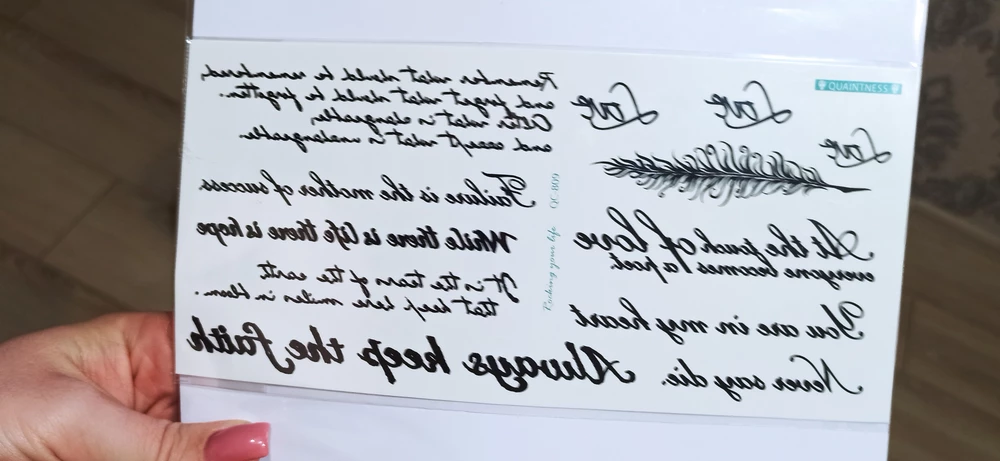 Remember what should be remembered,
and forget what should be forgotten.
Alter what is changeable,
and accept what is unchangeable.
Failure is the mother of success
While there is life there is hope
It is the tears of the earth
that keep here smiles in bloom.
Always keep the faith
QUAINTNESS
Love
Love
Love
At the touch of love
everyone becomes a poet.
You are in my heart
Never say die.
your life